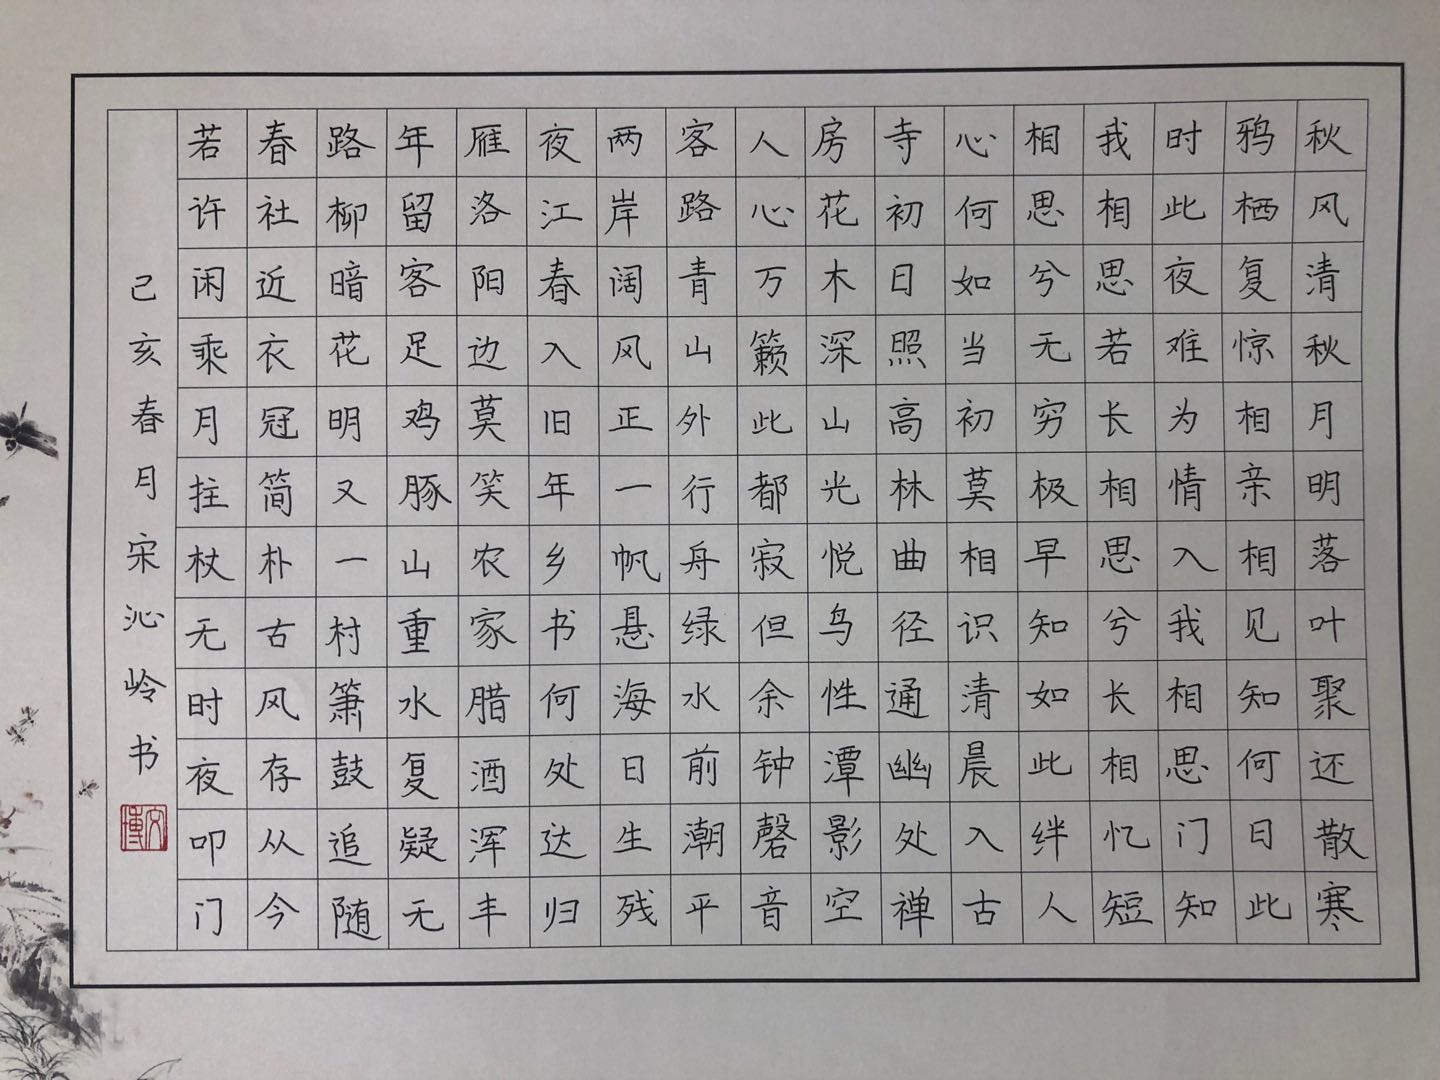 秋风清秋月明落叶聚还散寒
鸦栖复惊相亲相见知何日此
时此夜难为情入我相思门知
我相思若长相思兮长相忆短
相思兮无穷极早知如此绊人
心何如当初莫相识清晨入古
寺初日照高林曲径通幽处禅
房花木深山光悦鸟性潭影空
人心万籁此都寂但余钟磬音
客路青山外行舟绿水前潮平
两岸阔风正一帆悬海日生残
夜江春入旧年乡书何处达归
雁洛阳边莫笑农家腊酒浑丰
年留客足鸡豚山重水复疑无
路柳暗花明又一村箫鼓追随
春社近衣冠简朴古风存从今
若许闲乘月拄杖无时夜叩门
己亥春月宋沁岭书
文博